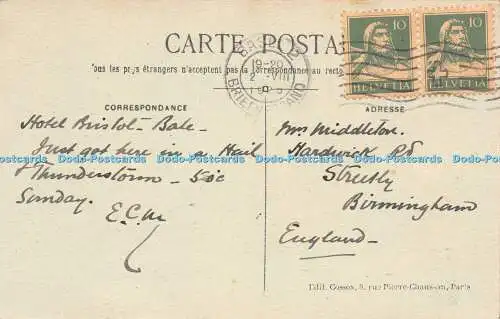 CARTE POSTALE
Tous les pays étrangers n'acceptent pas la correspondance au recto
10 10
HELVETIA HELVETIA
19-20
VIII
BRIEFVERSAND
CORRESPONDANCE
Hotel Bristol - Bale -
Just got here in a Hail
& Thunderstorm -
Sunday.
E.C.M
ADRESSE
Mrs Middleton.
Hardwick Rd
Streetly
Birmingham
England -
Edit. Cosson, 9, rue Pierre-Chausson, Paris
Dodo-Postcards Dodo-Postcards Dodo-Postcards Dodo-Postcards Dodo-Postcards Dodo-Postcards